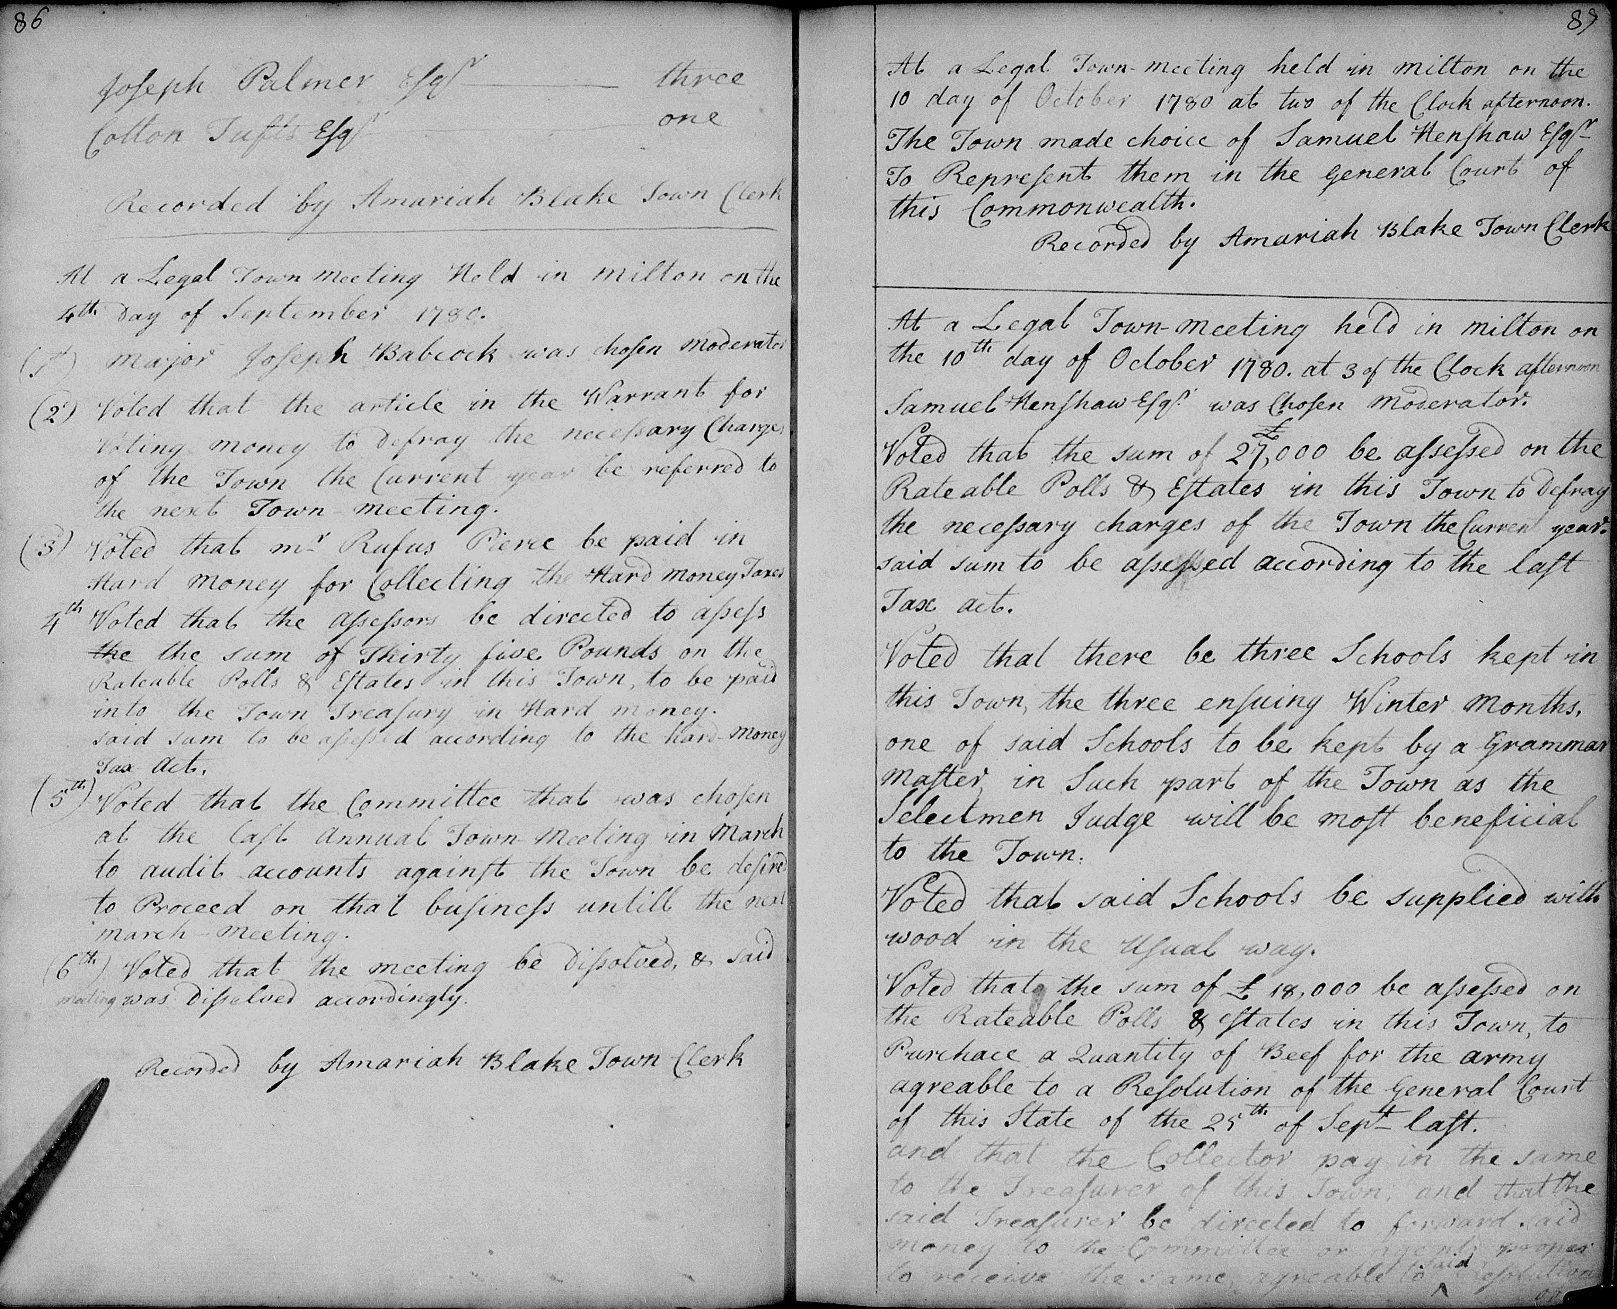 86
Joseph Palmer Esqr three
Cotton Tufts Esqr one
Recorded by Amariah Blake Town Clerk
At a Legal Town meeting Held in milton on the
4th Day of September 1780.
(1st) Major Joseph Babcock was chosen moderator
(2d) Voted that the article in the Warrant for
Voting money to defray the necessary Charges
of the Town the Current year be referred to
the next Town-meeting.
(3d) Voted that mr Rufus Pierce be paid in
Hard money for Collecting the Hard money Taxes
4th Voted that the assessors be directed to assess
the the sum of Thirty five Pounds on the
Rateable Polls & Estates in this Town, to be paid
into the Town Treasury in Hard money.
said sum to be assessed according to the hard-money
Tax Act.
(5th) Voted that the Committee that was chosen
at the last Annual Town-Meeting in March
to audit accounts against the Town be desired
to Proceed on that business untill the next
march-meeting.
(6th) Voted that the meeting be Dissolved, & said
meeting was Dissolved accordingly.
Recorded by Amariah Blake Town Clerk
At a Legal Town-meeting held in milton on the
10 day of October 1780 at two of the Clock afternoon.
The Town made choice of Samuel Henshaw Esqr
To Represent them in the General Court of
this Commonwealth.
Recorded by Amariah Blake Town Clerk
At a Legal Town-meeting held in milton on
the 10th day of October 1780. at 3 of the Clock afternoon
Samuel Henshaw Esqr was Chosen Moderator.
Voted that the sum of £27,000 be assessed on the
Rateable Polls & Estates in this Town to Defray
the necessary charges of the Town the Current year.
said sum to be assessed according to the last
Tax act.
Voted that there be three Schools kept in
this Town, the three ensuing Winter Months,
one of said Schools to be kept by a Grammar
Master, in Such part of the Town as the
Selectmen Judge will be most beneficial
to the Town.
Voted that said Schools be supplied with
wood in the Usual way.
Voted that the sum of £ 18,000 be assessed on
the Rateable Polls & Estates in this Town, to
Purchace a Quantity of Beef for the army
agreable to a Resolution of the General Court
of this State of the 25th of Sept last.
and that the Collector pay in the same
to the Treasurer of this Town, and that the
said Treasurer be directed to forward said
money to the Committee or Agent proper
to receive the same, agreable to said resolution